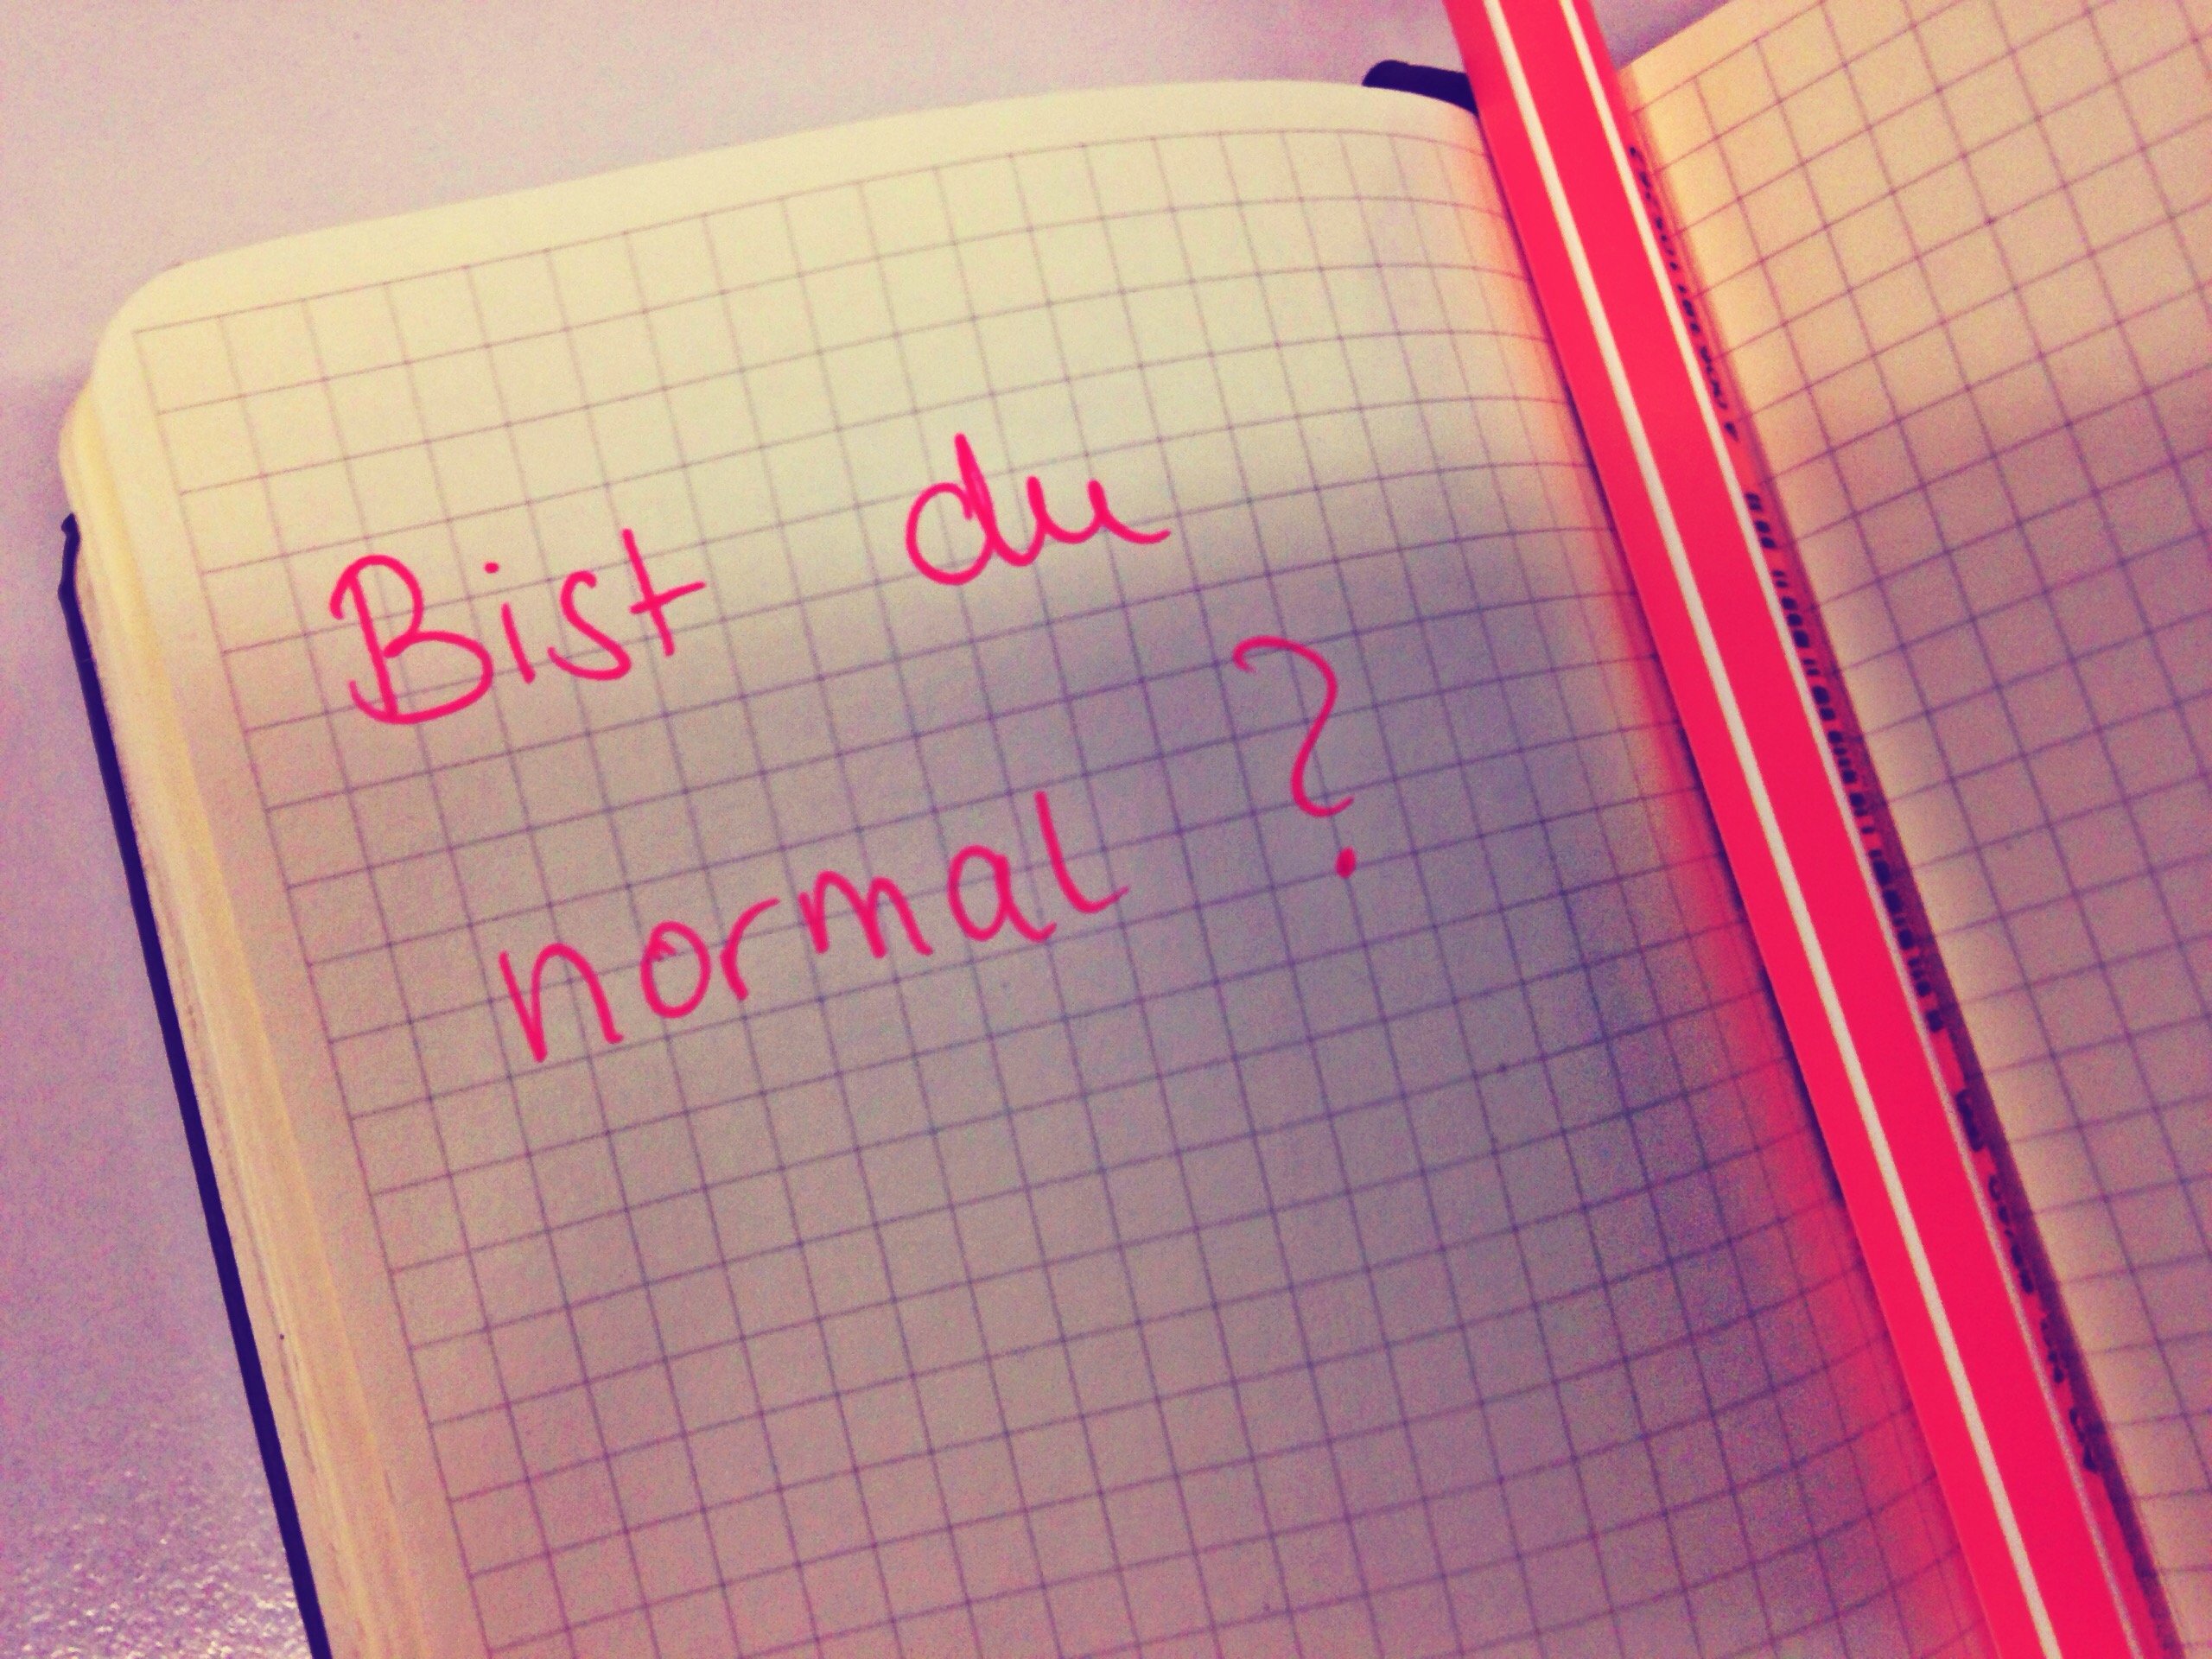 Bist du
normal?